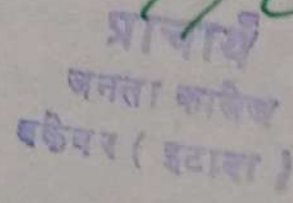 प्राचार्य
जनता कालेज
बकेवर ( इटावा )